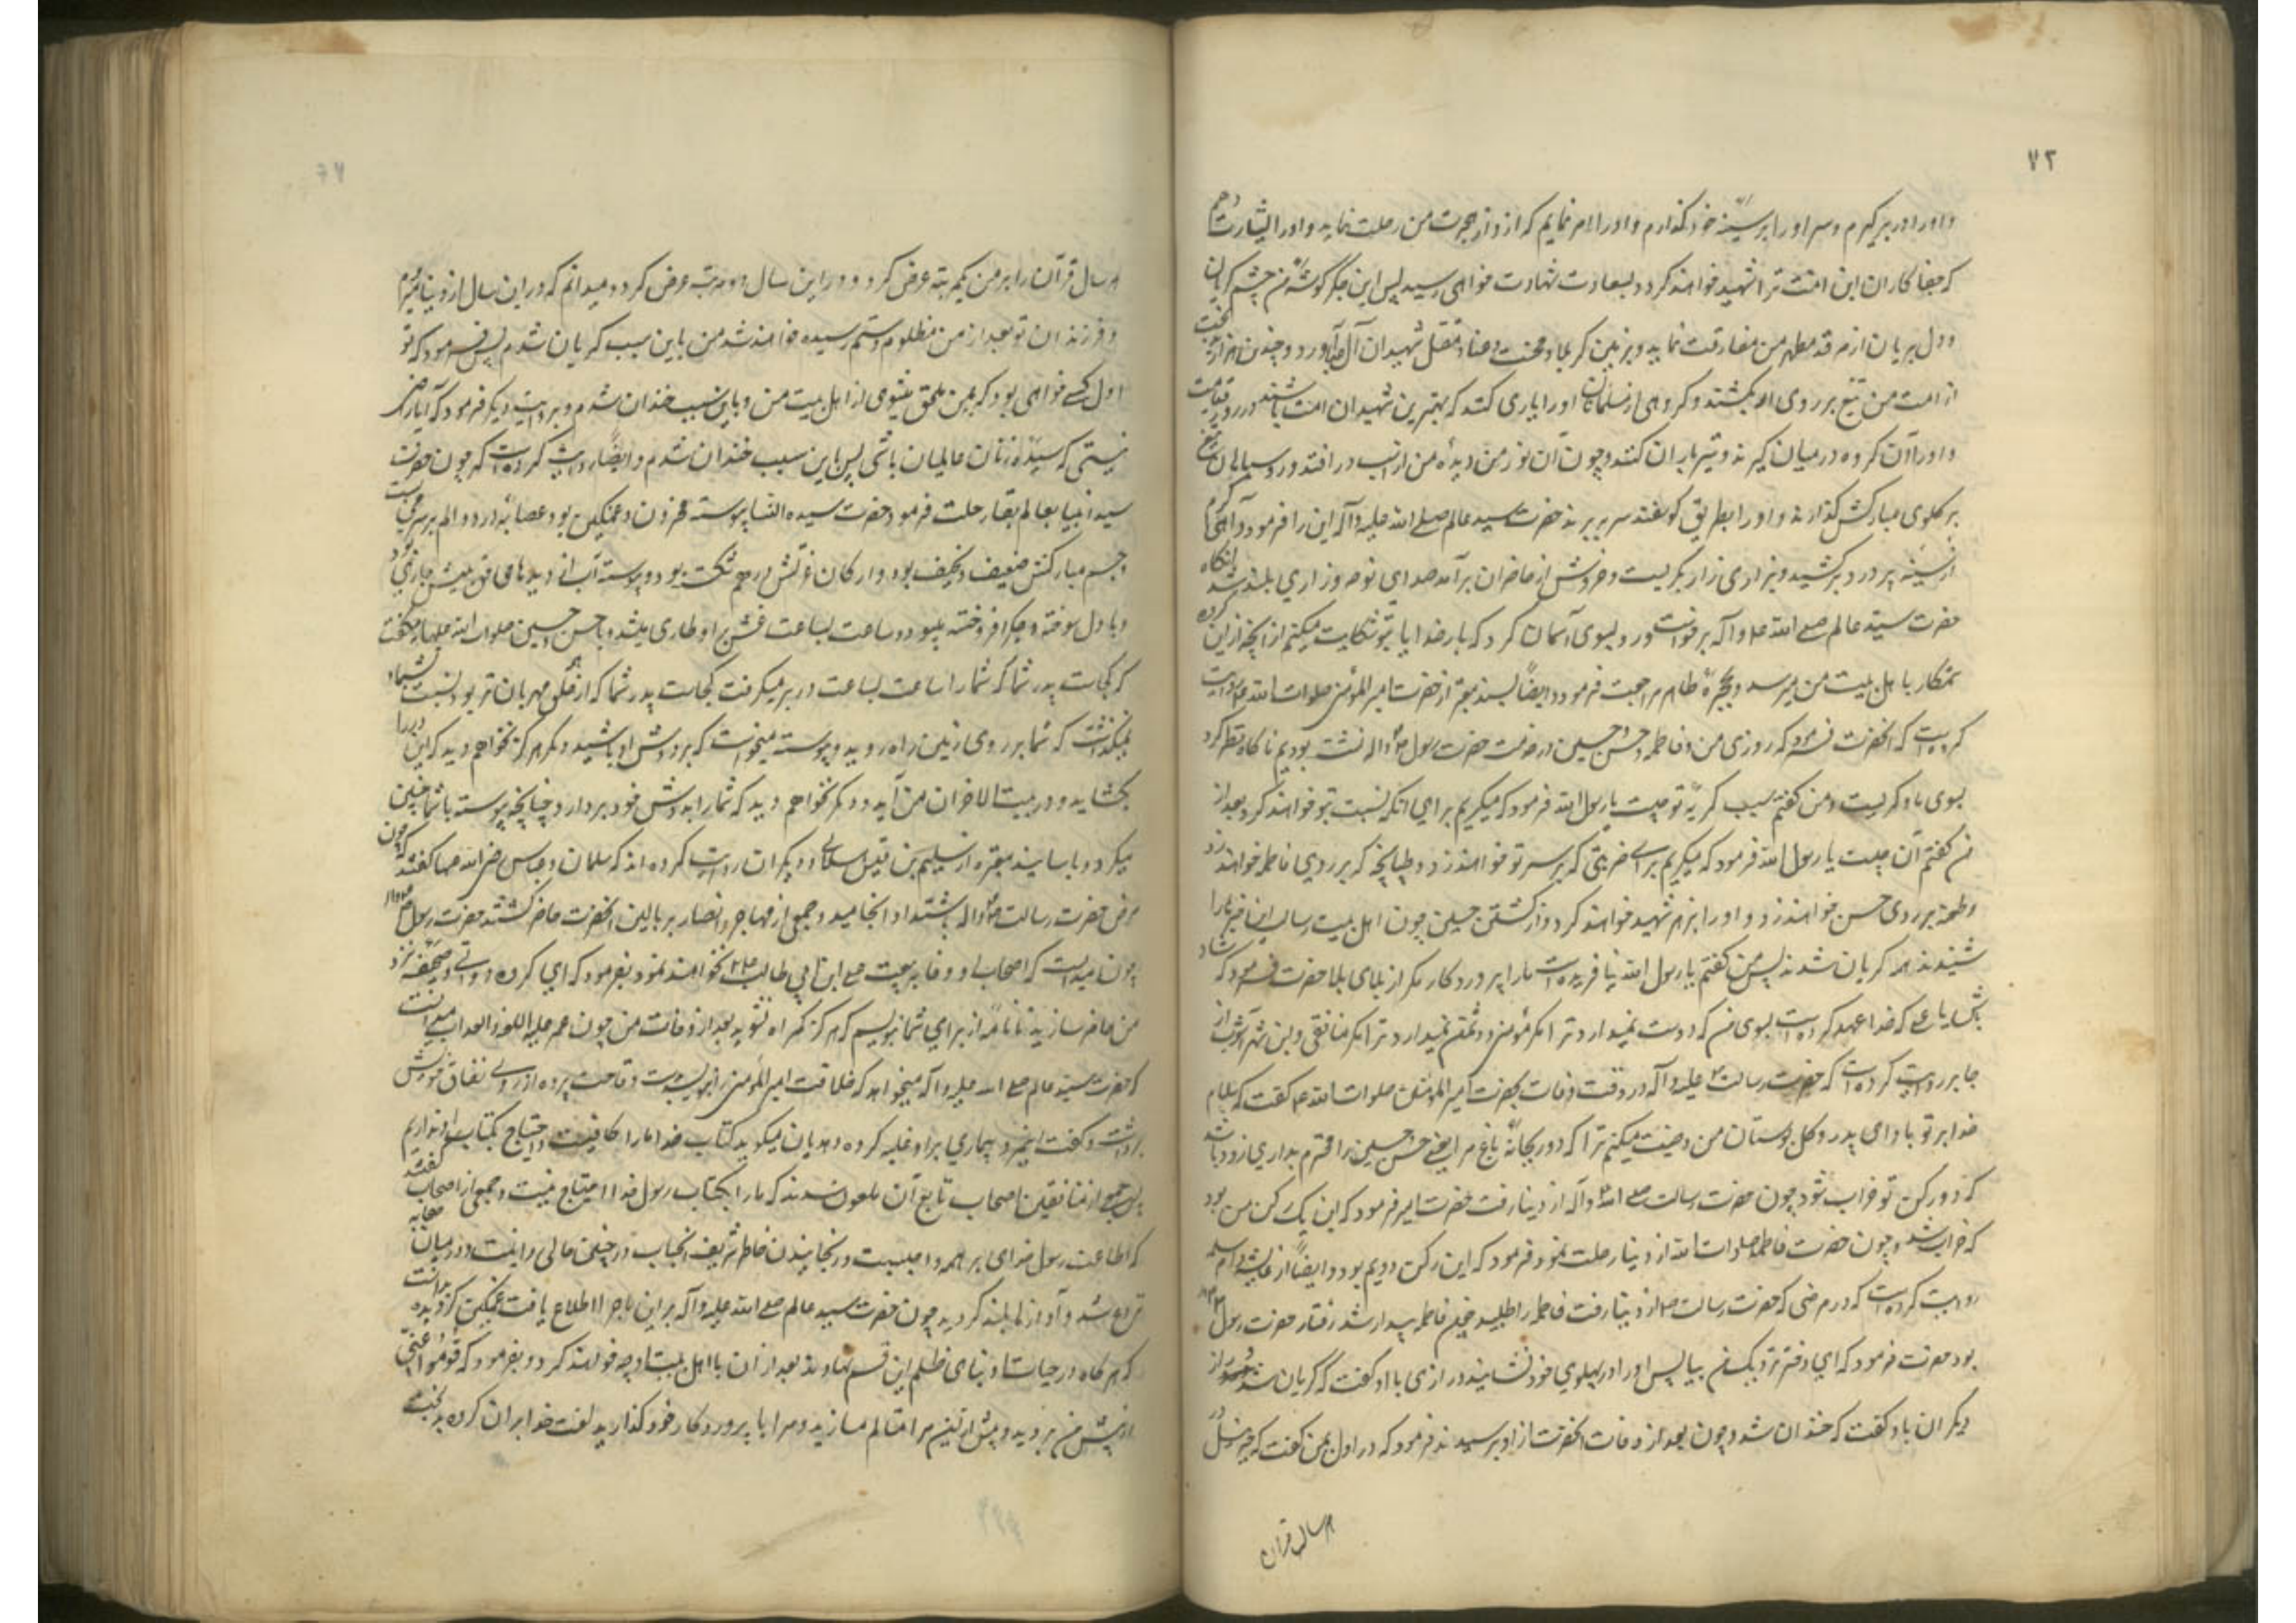 ۷۲
و او را در بر گیرم و سر او را بر سینه خود گذارم و او را امر نمایم که از دار هجرت من رحلت نماید و او را بشارت دهم
که جفا کاران این امت ترا شهید خواهند کرد و بسعادت شهادت خواهی رسید پس این جگر گوشه من چشم گریان
و دل بریان از مرقد مطهر من مفارقت نماید و بزمین کربلا و محنت و عنا و مقتل شهیدان آل عبا آورد و چندین هزار
از امت من تیغ بر روی او بکشند و گروهی از مسلمانان او را یاری کنند که بهترین شهیدان امت باشند در روز قیامت
و او را آن گروه در میان گیرند و تیر باران کنند و چون آن نور من دیده من از اسب در افتد و رو سیاهان تیغ
بر گلوی مبارکش گذارند و او را بطریق گوسفند سر ببرند حضرت سید عالم صلی الله علیه و آله این را فرمود و آهی گرم
از سینه پر درد بر کشید و بزاری زار بگریست و خروش از حاضران بر آمد صدای نوحه و زاری بلند شد آنگاه
حضرت سید عالم صلی الله علیه و آله برخواست و رو بسوی آسمان کرد که بار خدایا بتو شکایت میکنم از آنچه از این گروه
ستمکار با اهل بیت من میرسد و بحجره طاهره مراجعت فرمود و ایضا بسند معتبر از حضرت امیر المؤمنین صلوات الله علیه روایت
کرده است که آنحضرت فرمود که روزی من و فاطمه و حسن و حسین در خدمت حضرت رسول ص و آله نشسته بودیم ناگاه نظر کرد
بسوی ما و گریست و من گفتم سبب گریه تو چیست یا رسول الله فرمود که میگریم برای آنکه نسبت بتو خواهند کرد بعد از
من گفتم آن چیست یا رسول الله فرمود که میگریم برای ضربتی که بر سر تو خواهند زد و طپانچه که بر روی فاطمه خواهند زد
و طعنه بر روی حسن خواهند زد و او را بزهر شهید خواهند کرد و از کشتن حسین چون اهل بیت رسالت این خبر را
شنیدند همه گریان شدند پس من گفتم یا رسول الله نیافریده است ما را پروردگار مگر از برای بلا حضرت فرمود که شاد
باش یا علی که خدا عهد کرده است بسوی من که دوست نمیدارد ترا مگر مؤمن و دشمن نمیدارد ترا مگر منافقی و ابن شهرآشوب از
جابر روایت کرده است که حضرت رسالت ص علیه و آله در وقت وفات بحضرت امیر المؤمنین صلوات الله علیه گفت که سلام
خدا بر تو باد ای پدر دو گل بوستان من وصیت میکنم ترا که دو ریحانه باغ مرا یعنی حسن و حسین را محترم بداری زود باشد
که دو رکن تو خراب شود چون حضرت رسالت صلی الله و آله از دنیا رفت حضرت امیر فرمود که این یک رکن من بود
که خراب شد و چون حضرت فاطمه صلوات الله از دنیا رحلت نمود فرمود که این رکن دویم بود و ایضا از عایشه و ام سلمه
روایت کرده است که در مرضی که حضرت رسالت ص از دنیا رفت فاطمه را طلبید چون فاطمه پیدا شد رفتار حضرت رسول
بود حضرت فرمود که ای دختر نزدیک من بیا پس او را در پهلوی خود نشانید و رازی با او گفت که گریان شد و راز
دیگر آن با او گفت که خندان شد و چون بعد از وفات آنحضرت از او پرسیدند فرمود که در اول بمن گفت که جبرئیل در
هر سال قرآن
هر سال قرآن را بر من یکمرتبه عرض کرد و در این سال دو مرتبه عرض کرد و میدانم که در این سال از دنیا میروم
و فرزندان تو بعد از من مظلوم و ستم رسیده خواهند شد من باین سبب گریان شدم پس فرمود که تو
اول کسی خواهی بود که بمن ملحق میشوی از اهل بیت من و باین سبب خندان شدم و بروایت دیگر فرمود که آیا راضی
نیستی که سیده زنان عالمیان باشی پس باین سبب خندان شدم و ایضا روایت کرده است که چون حضرت
سید انبیا بعالم بقا رحلت فرمود حضرت سیده النسا پیوسته محزون و غمگین بود و عصابه درد و الم بر سر می بست
و جسم مبارکش ضعیف و نحیف بود و ارکان عزتش در هم شکسته بود و پیوسته آب از دیدهای حق بینش جاری بود
و با دل سوخته و جگر افروخته میبود و ساعت بساعت غشی بر او طاری میشد و با حسن و حسین صلوات الله علیهما میگفت
که کجاست پدر شما که شما را ساعت بساعت در بر میگرفت کجاست پدر شما که از همگی مهربان تر بود نسبت بشما و
نمیگذاشت که شما بر روی زمین راه روید و پیوسته میخواست که بر دوش او باشید دیگر هرگز نخواهم دید که این در را
بگشاید و در بیت الاحزان من آید و دیگر نخواهم دید که شما را بدوش خود بر دارد چنانچه پیوسته با شما چنین
میکرد و با سانید معتبره از سلیم بن قیس هلالی و دیگران روایت کرده اند که سلمان و عباس رضی الله عنهما گفتند که چون
مرض حضرت رسالت ص و آله باشتداد انجامید و جمعی از مهاجر و انصار بر بالین آنحضرت حاضر گشتند حضرت رسول ص و آله
چون میدانست که اصحاب او وفا به بیعت علی ابن ابی طالب ع نخواهند نمود بفرمود که ای گروه دواتی و صحیفه نزد
من حاضر سازید تا نامه از برای شما بنویسم که هرگز گمراه نشوید بعد از وفات من چون عمر علیه اللعنه و العذاب میدانست
که حضرت سید عالم صلی الله علیه و آله میخواهد که خلافت امیر المؤمنین را بنویسد دست وقاحت پرده از روی نفاق خویش
برداشت و گفت اینمرد بیماری بر او غلبه کرده و هذیان میگوید کتاب خدا ما را کافیست و احتیاج بکتاب او نداریم
پس جمعی از منافقین اصحاب تابع آن ملعون شدند که ما را بکتاب رسول خدا احتیاج نیست و جمعی از اصحاب گفتند
که اطاعت رسول خدای بر همه واجبست و رنجانیدن خاطر شریف آنجناب در چنین حالی روا نیست و در میان صحابه
نزاع شد و آوازها بلند گردید چون حضرت سید عالم صلی الله علیه و آله بر این ماجرا اطلاع یافت غمگین گردیده دانست
که هر گاه در حیات او بنای ظلم این قسم نهادند بعد از آن با اهل بیت او چه خواهند کرد و بفرمود که قوموا عنی
از پیش من بروید و بیش از این مرا متالم مسازید و مرا با پروردگار خود گذارید لعنت خدا بر آن گروه بد بخت